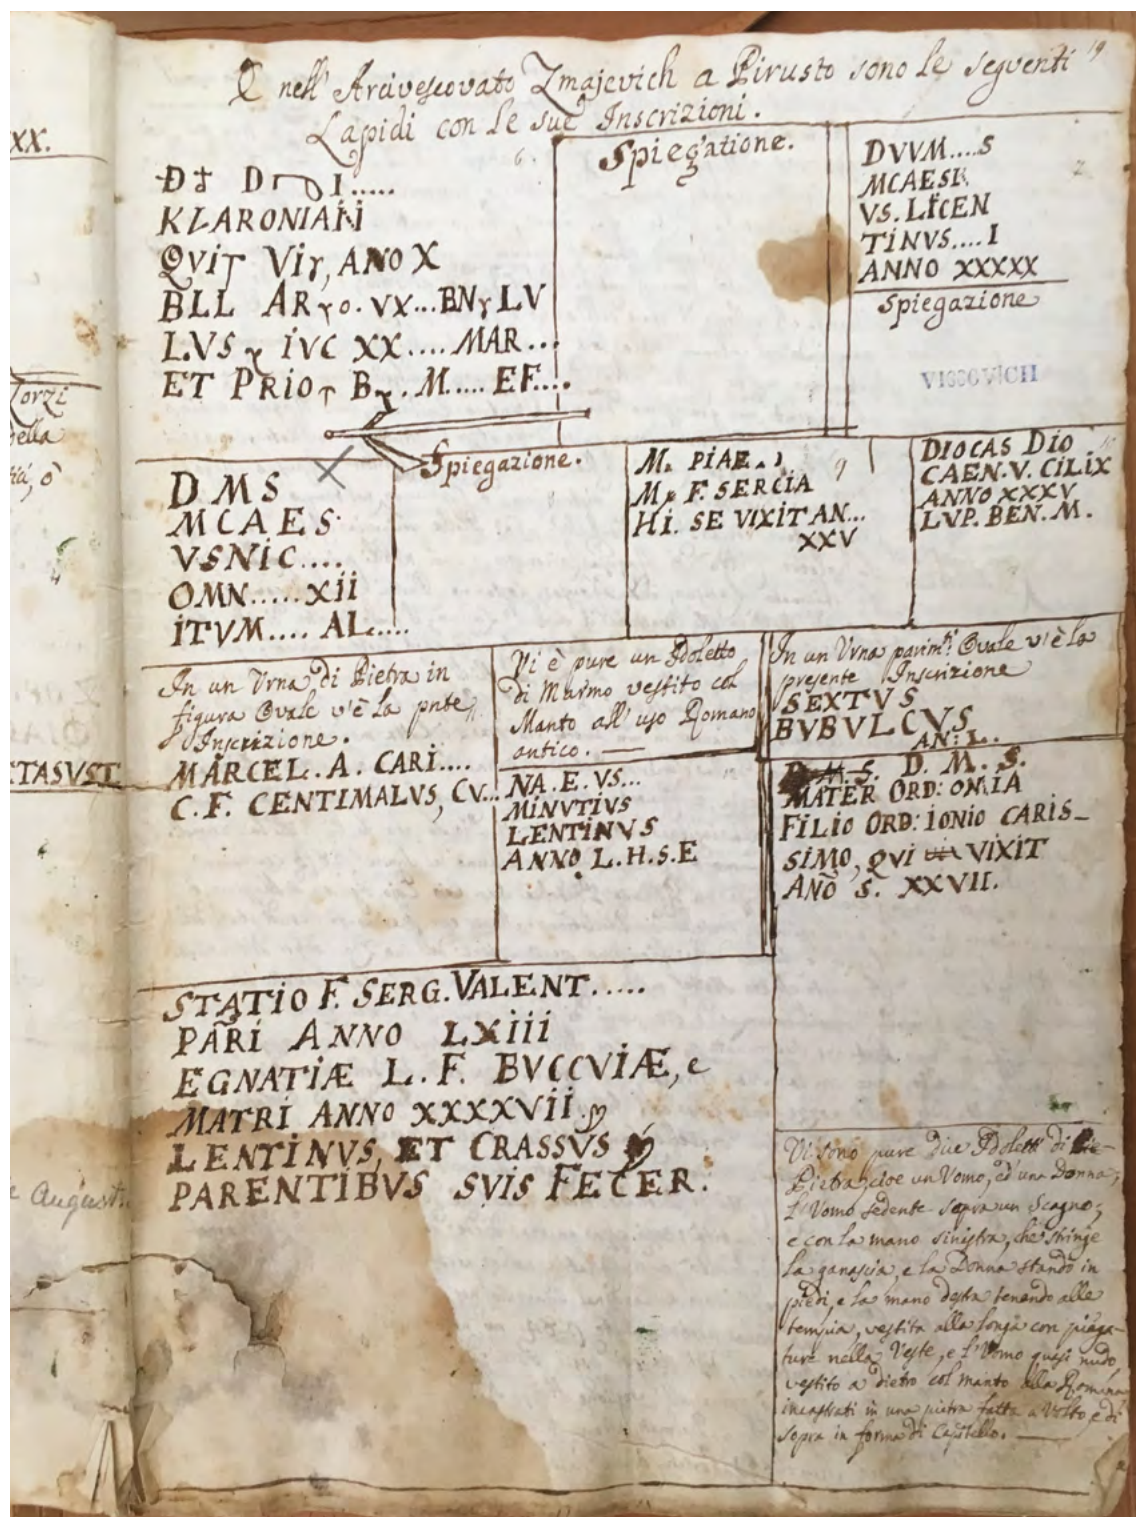 E nell' Arcivescovato Zmajevich a Pirusto sono le seguenti
19
Lapidi con le sue Inscrizioni.
6.
D I.....
KLARONIANI
QVIT VIT, ANO X
BLL AR O. VX... BN LV
LVS IVC XX.... MAR...
ET PRIO B . M..... EF....
Spiegatione.
DVVM....S
MCAESI
VS. LICEN
TINVS.... I
ANNO XXXXX
Spiegazione
VISCOVICH
D M S
M C A E S
VSNIC....
OMN.....XII
ITVM.... AL....
Spiegazione.
M. PIAE..
M F. SERCIA
HI. SE VIXIT AN...
XXV
9
DIOCAS DIO
CAEN. V. CILIX
ANNO XXXV
LVP. BEN. M.
In un Vrna di Pietra in
figura Ovale v'è la pnte
Inscrizione.
MARCEL. A. CARI....
C. F. CENTIMALVS, CV...
Vi è pure un Idoletto
di Marmo vestito col
Manto all' uso Romano
antico. —
NA. E. VS...
MINVTIVS
LENTINVS
ANNO. L. H. S. E
In un Vrna parimti Ovale v'è la
presente Inscrizione
SEXTVS
BVBVLCVS
AN: L.
D. M. S. D. M. S.
MATER ORD: ONIA
FILIO ORD: IONIO CARIS-
SIMO, QVI VIXIT
ANÕ S. XXVII.
STATIO F. SERG. VALENT.....
PÃRI ANNO LXIII
EGNATIÆ L. F. BVCCVIÆ, e
MATRI ANNO XXXXVII.
LENTINVS, ET CRASSVS
PARENTIBVS SVIS FECER.
Vi sono pure due Idoletti di
Pietra, cioe un Vomo, ed una Donna,
l'Vomo sedente sopra un Scagno,
e con la mano sinistra, che stringe
la ganascia, e la Donna stando in
piedi, e la mano destra tenendo alle
tempia, vestita alla longa con piega-
ture nella Veste, e l'Vomo quasi nudo
vestito a dietro col manto alla Romana
incastrati in una pietra fatta a Volto, e di
sopra in forma di Capitello. —
XX.
Torzi
ella
TASVST
e August